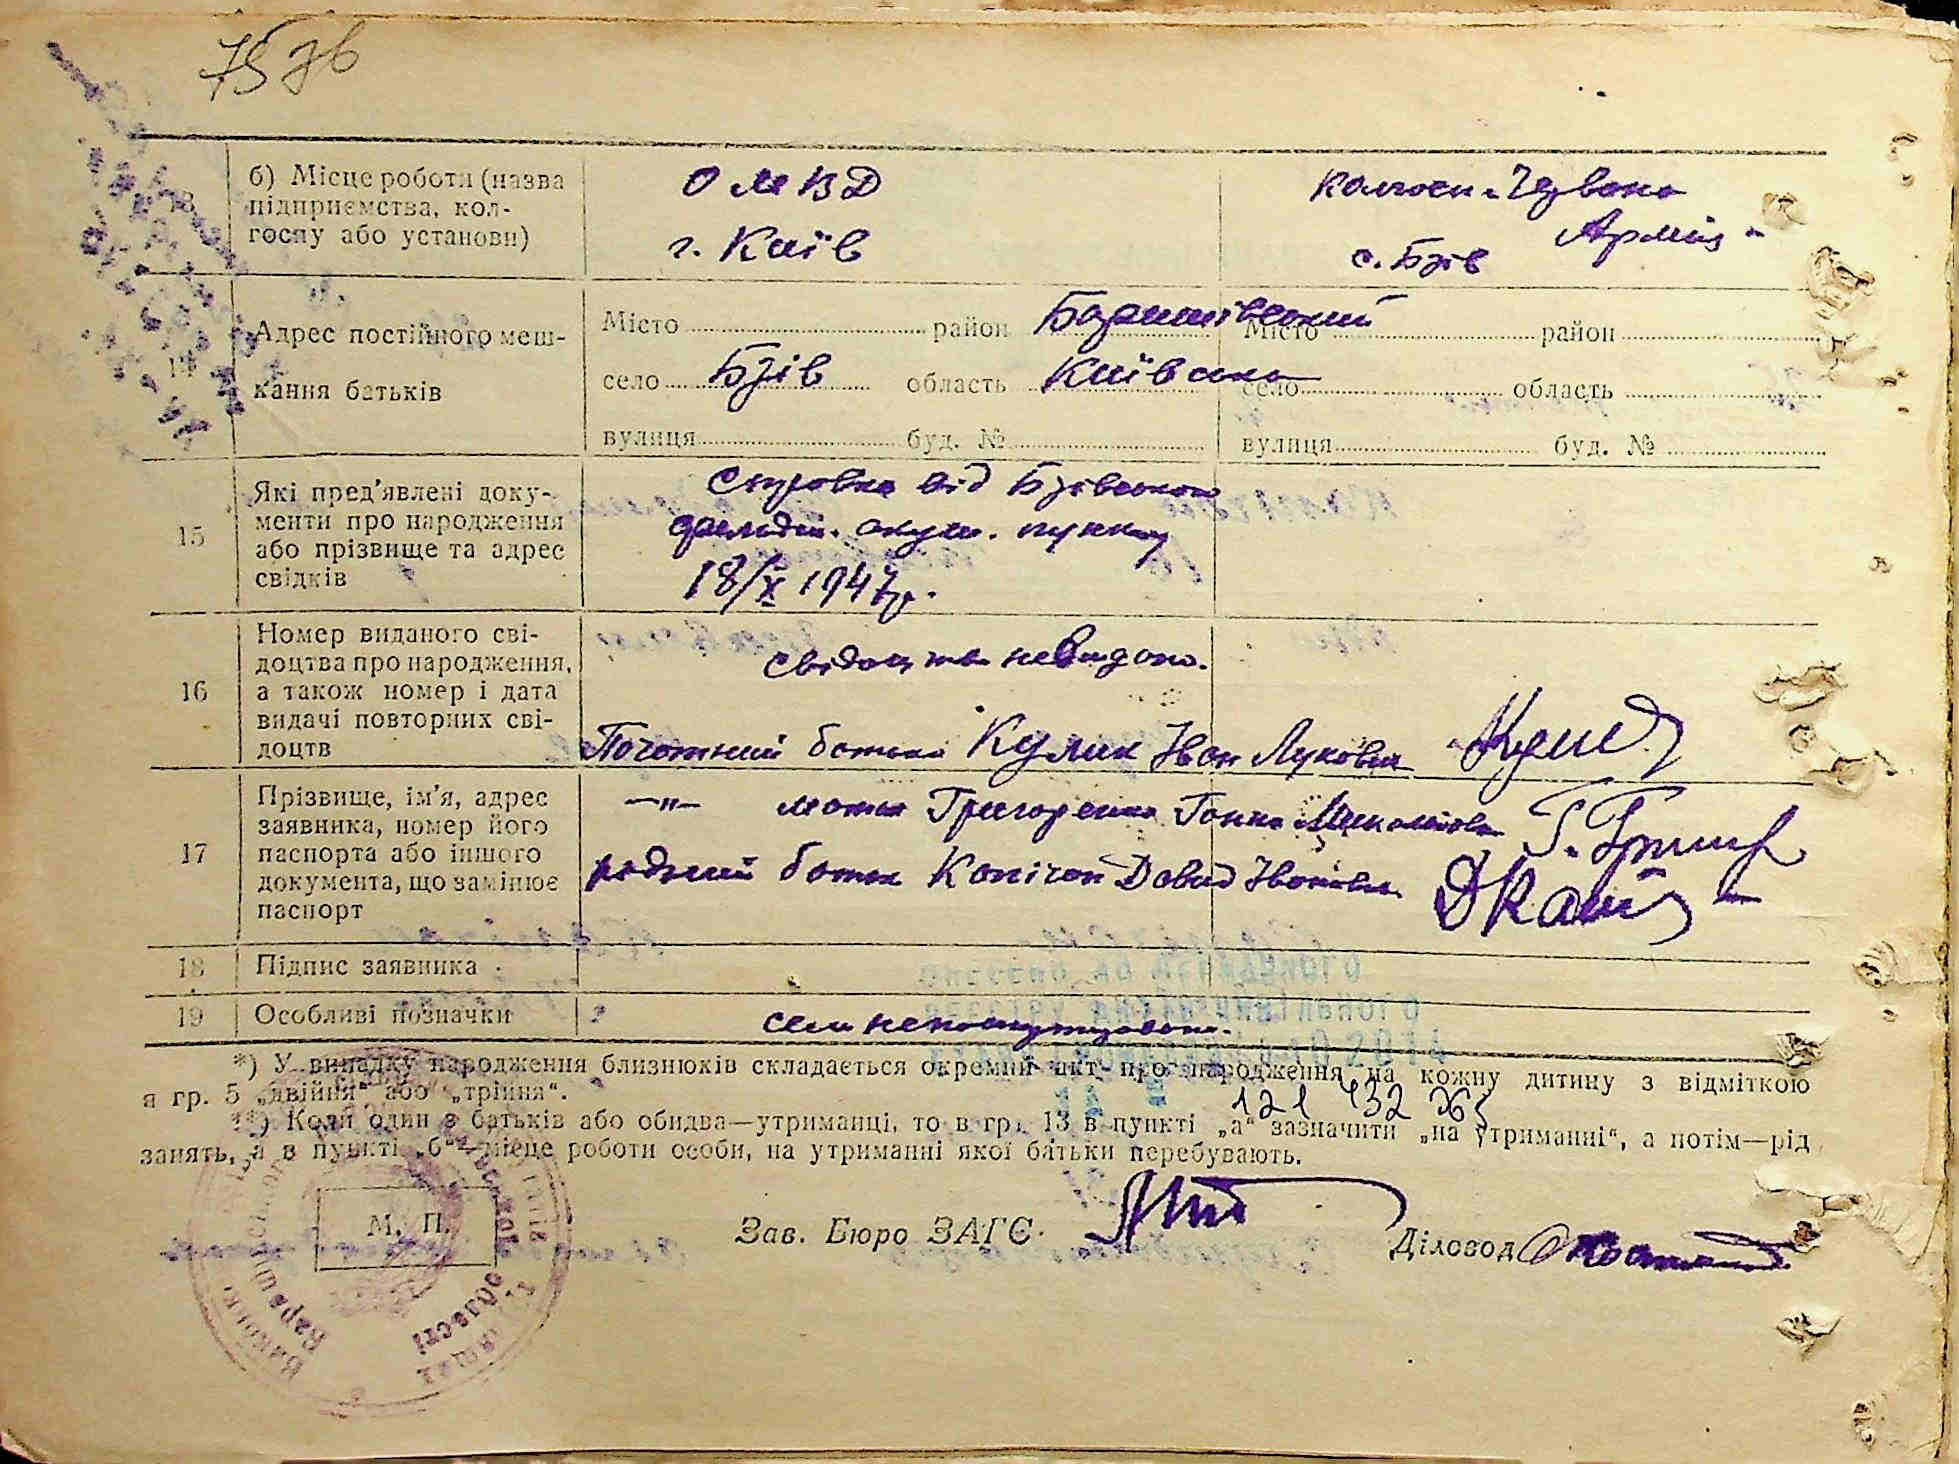 75 зв
13 б) Місце роботи (назва підприємства, колгоспу або установи)
О М В Д
г. Київ
Колгосп „Червона
Армія"
с. Бзів
14 Адрес постійного меш-
кання батьків
Місто район Баришівський
село Бзів область Київська
вулиця буд. №
Місто район
село область
вулиця буд. №
15 Які пред'явлені доку-
менти про народження
або прізвище та адрес
свідків
Справка від Бзівського
фельдш. акуш. пункту
18/X 1947р.
16 Номер виданого сві-
доцтва про народження,
а також номер і дата
видачі повторних сві-
доцтв
свідоцтва не видано.
батько Кулик Іван Лукович
17 Прізвище, ім'я, адрес
заявника, номер його
паспорта або іншого
документа, що замінює
паспорт
—"— мати Григоренко Ганна Миколаївна
рідний батько Давид Іванович
18 Підпис заявника
19 Особливі позначки
Внесено до Державного
реєстру актів цивільного
2014
*) У випадку народження близнюків складається окремий акт про народження на кожну дитину з відміткою
в гр. 5 „двійня" або „трійня".
121 432 265
**) Коли один з батьків або обидва—утриманці, то в гр. 13 в пункті „а" зазначити „на утриманні", а потім—рід
занять, а в пункті „б"—місце роботи особи, на утриманні якої батьки перебувають.
М. П.
Зав. Бюро ЗАГС
Діловод